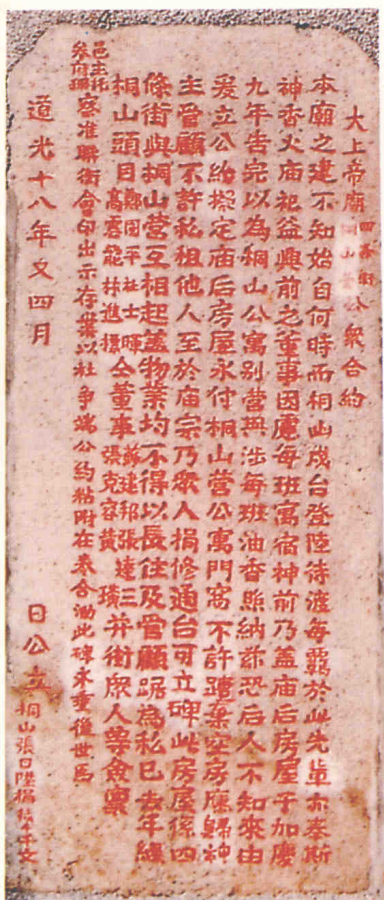 大上帝廟四條街桐山营公眾合約
本廟之建不知始自何時而桐山戍台登陸待渡每覊於此先軰亦奉斯
神香火庙祀益興前之董事因慮每班寓宿神前乃盖庙后房屋于加慶
九年告完以為桐山公寓别营無涉每班油香照納茲恐后人不知來由
爰立公約擬定庙后房屋永付桐山营公寓門窓不許遭棄空房應歸神
主管顧不許私租他人至於庙宗乃眾人捐修通台可立碑此房屋係四
條街與桐山营互相起盖物業均不得以長住及管顧踞為私已去年經
桐山頭目鄭国平杜士暉高雲龍林進標仝董事蔣建邦張達三張克容黄璜并街眾人等僉禀
邑主托叅府珊察准聯衔會印出示存業以杜争端公約粘附在泰合油此碑永垂後世焉
道光十八年又四月 日公立桐山張日陞